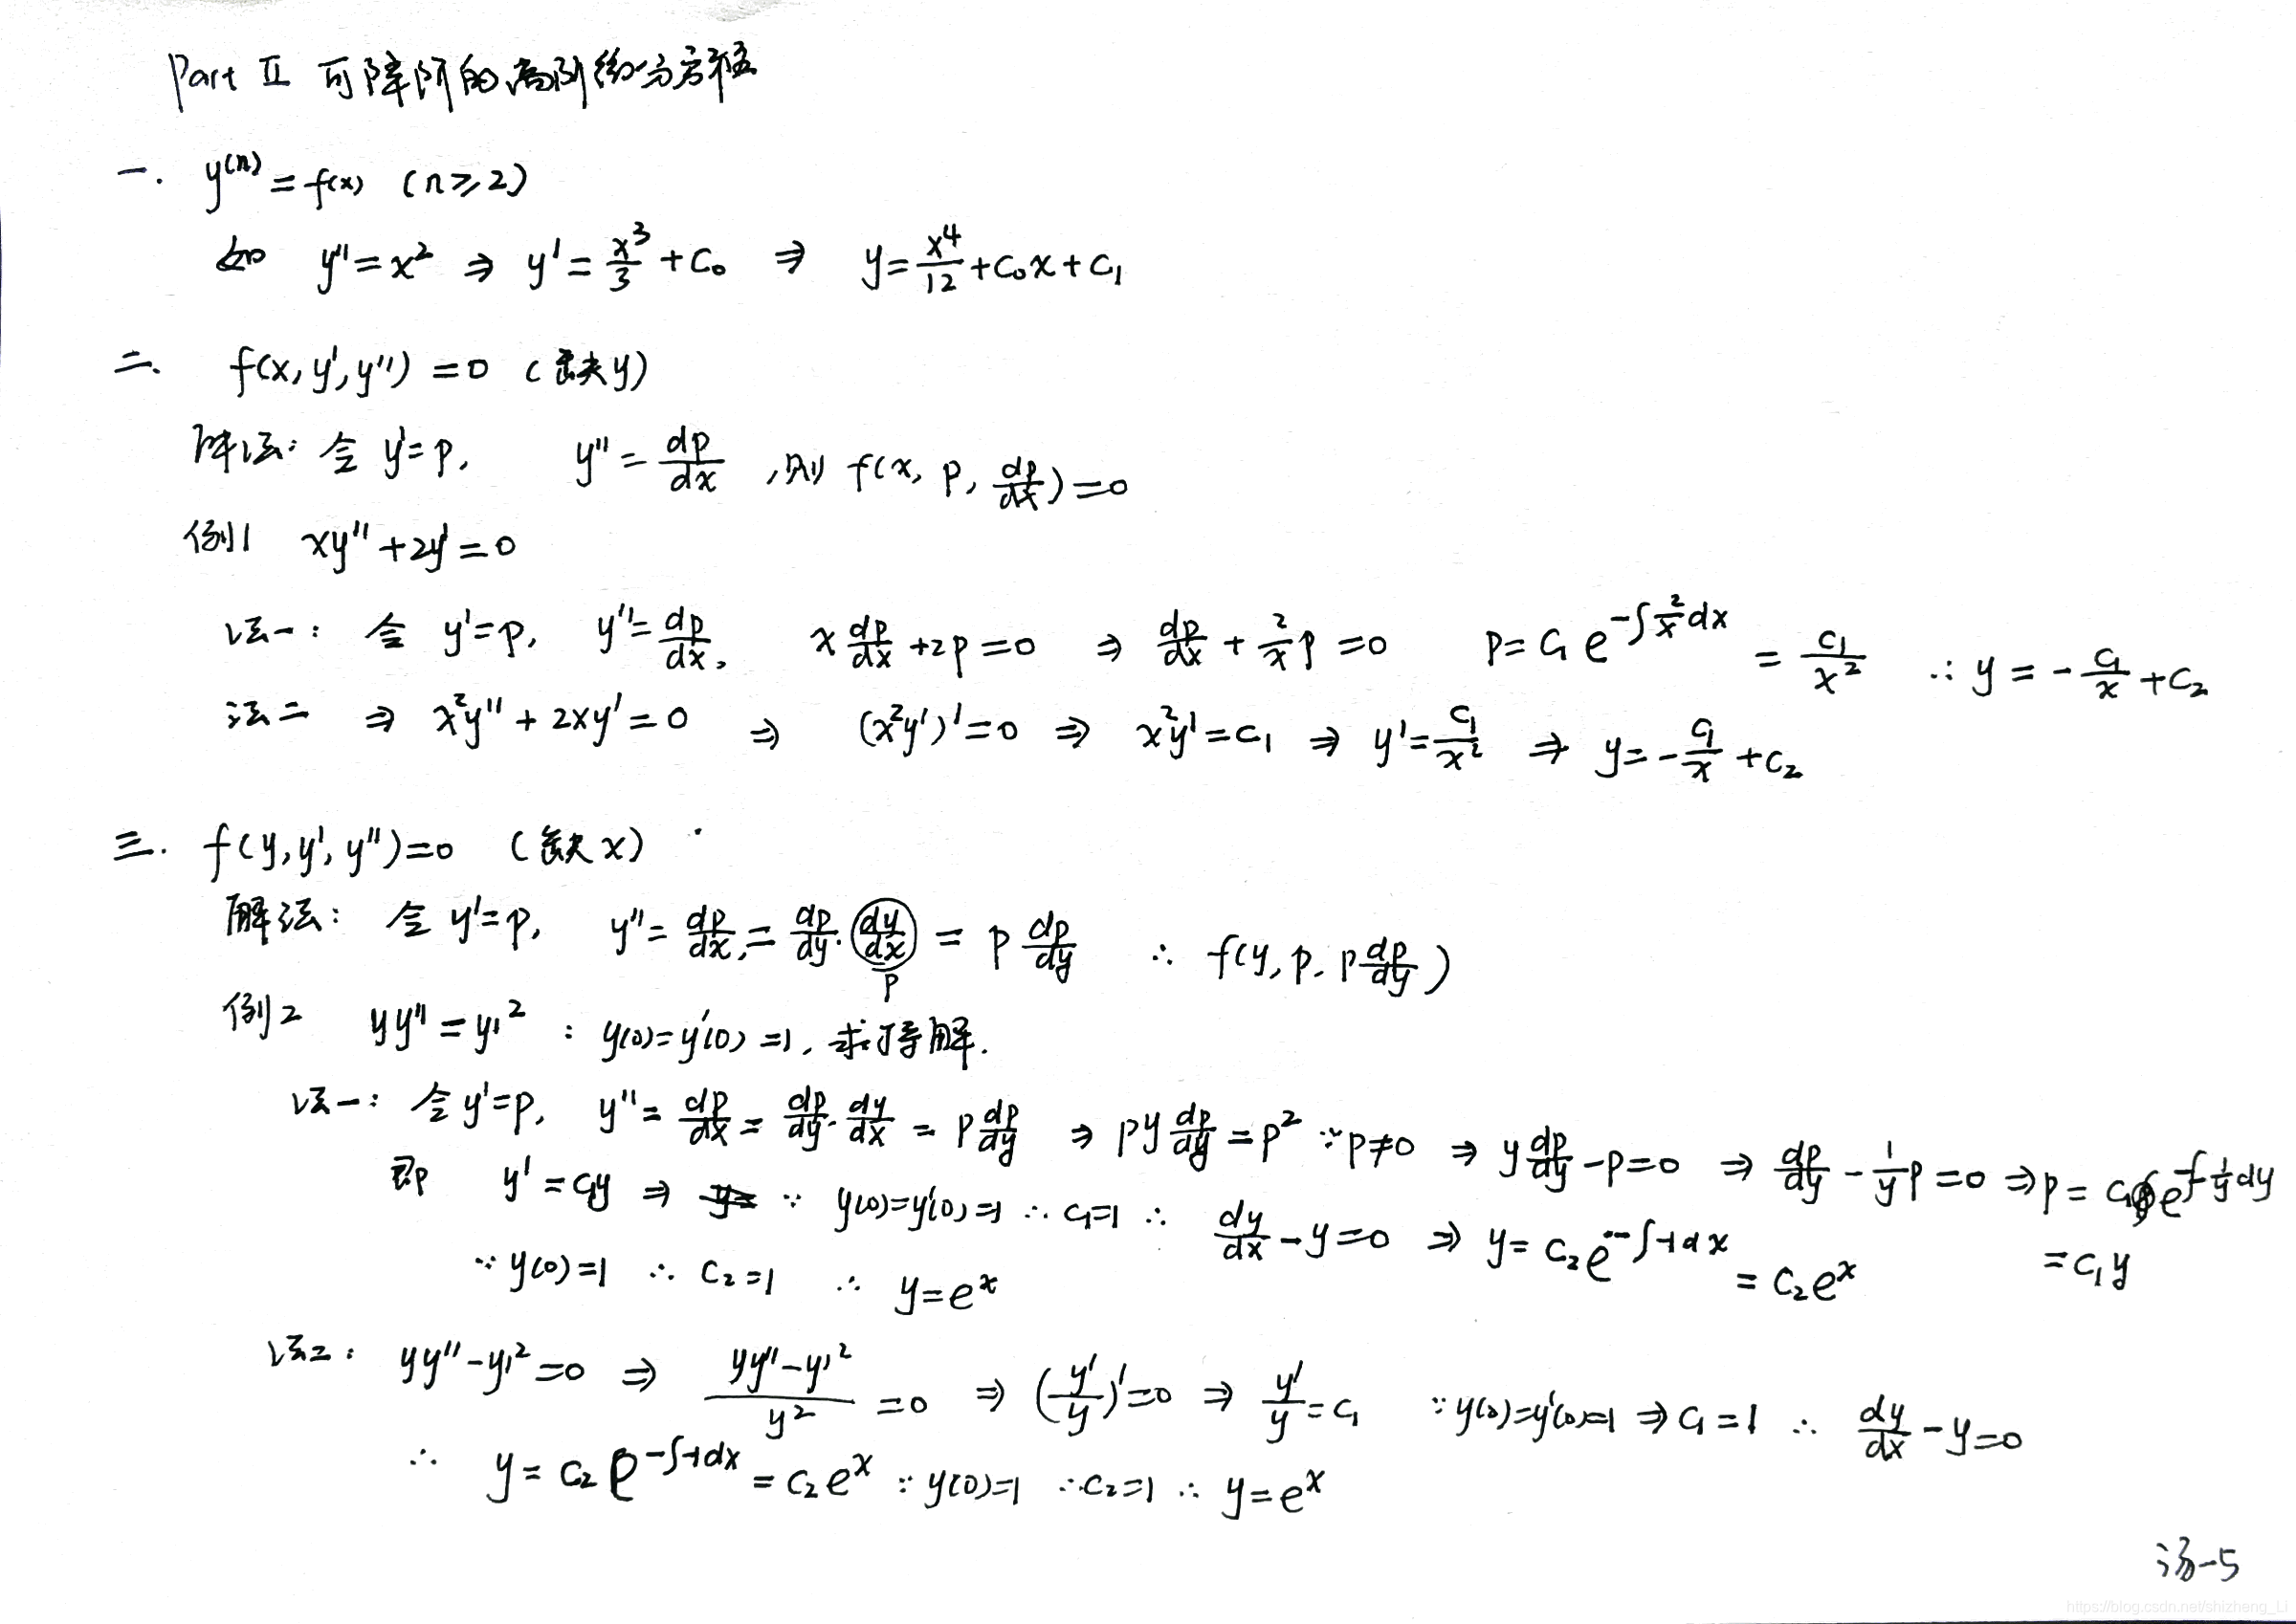 Part II 可降阶的高阶微分方程
一. y⁽ⁿ⁾=f(x) (n≥2)
如 y''=x² ⇒ y'=x³/3+C₀ ⇒ y=x⁴/12+C₀x+C₁
二. f(x,y',y'')=0 (缺y)
解法: 令 y'=p, y''=dp/dx, 则 f(x, p, dp/dx)=0
例1 xy''+2y'=0
法一: 令 y'=p, y''=dp/dx, x dp/dx+2p=0 ⇒ dp/dx+(2/x)p=0 p=C₁e^(-∫(2/x)dx)=C₁/x² ∴y=-C₁/x+C₂
法二 ⇒ x²y''+2xy'=0 ⇒ (x²y')'=0 ⇒ x²y'=C₁ ⇒ y'=C₁/x² ⇒ y=-C₁/x+C₂
三. f(y,y',y'')=0 (缺x)
解法: 令 y'=p, y''=dp/dx=dp/dy·dy/dx=p dp/dy ∴ f(y,p,p dp/dy)
p
例2 yy''=y'² : y(0)=y'(0)=1, 求特解.
法一: 令y'=p, y''=dp/dx=dp/dy·dy/dx=p dp/dy ⇒ py dp/dy=p² ∵p≠0 ⇒ y dp/dy-p=0 ⇒ dp/dy-(1/y)p=0 ⇒p=C₁e^(-∫-(1/y)dy)
即 y'=C₁y ⇒ ∵ y(0)=y'(0)=1 ∴C₁=1 ∴ dy/dx-y=0 ⇒ y=C₂e^(-∫-1dx)=C₂eˣ =C₁y
∵y(0)=1 ∴ C₂=1 ∴ y=eˣ
法二: yy''-y'²=0 ⇒ (yy''-y'²)/y²=0 ⇒ (y'/y)'=0 ⇒ y'/y=C₁ ∵y(0)=y'(0)=1 ⇒C₁=1 ∴ dy/dx-y=0
∴ y=C₂e^(-∫-1dx)=C₂eˣ ∵y(0)=1 ∴C₂=1 ∴ y=eˣ
汤-5
https://blog.csdn.net/shizheng_Li